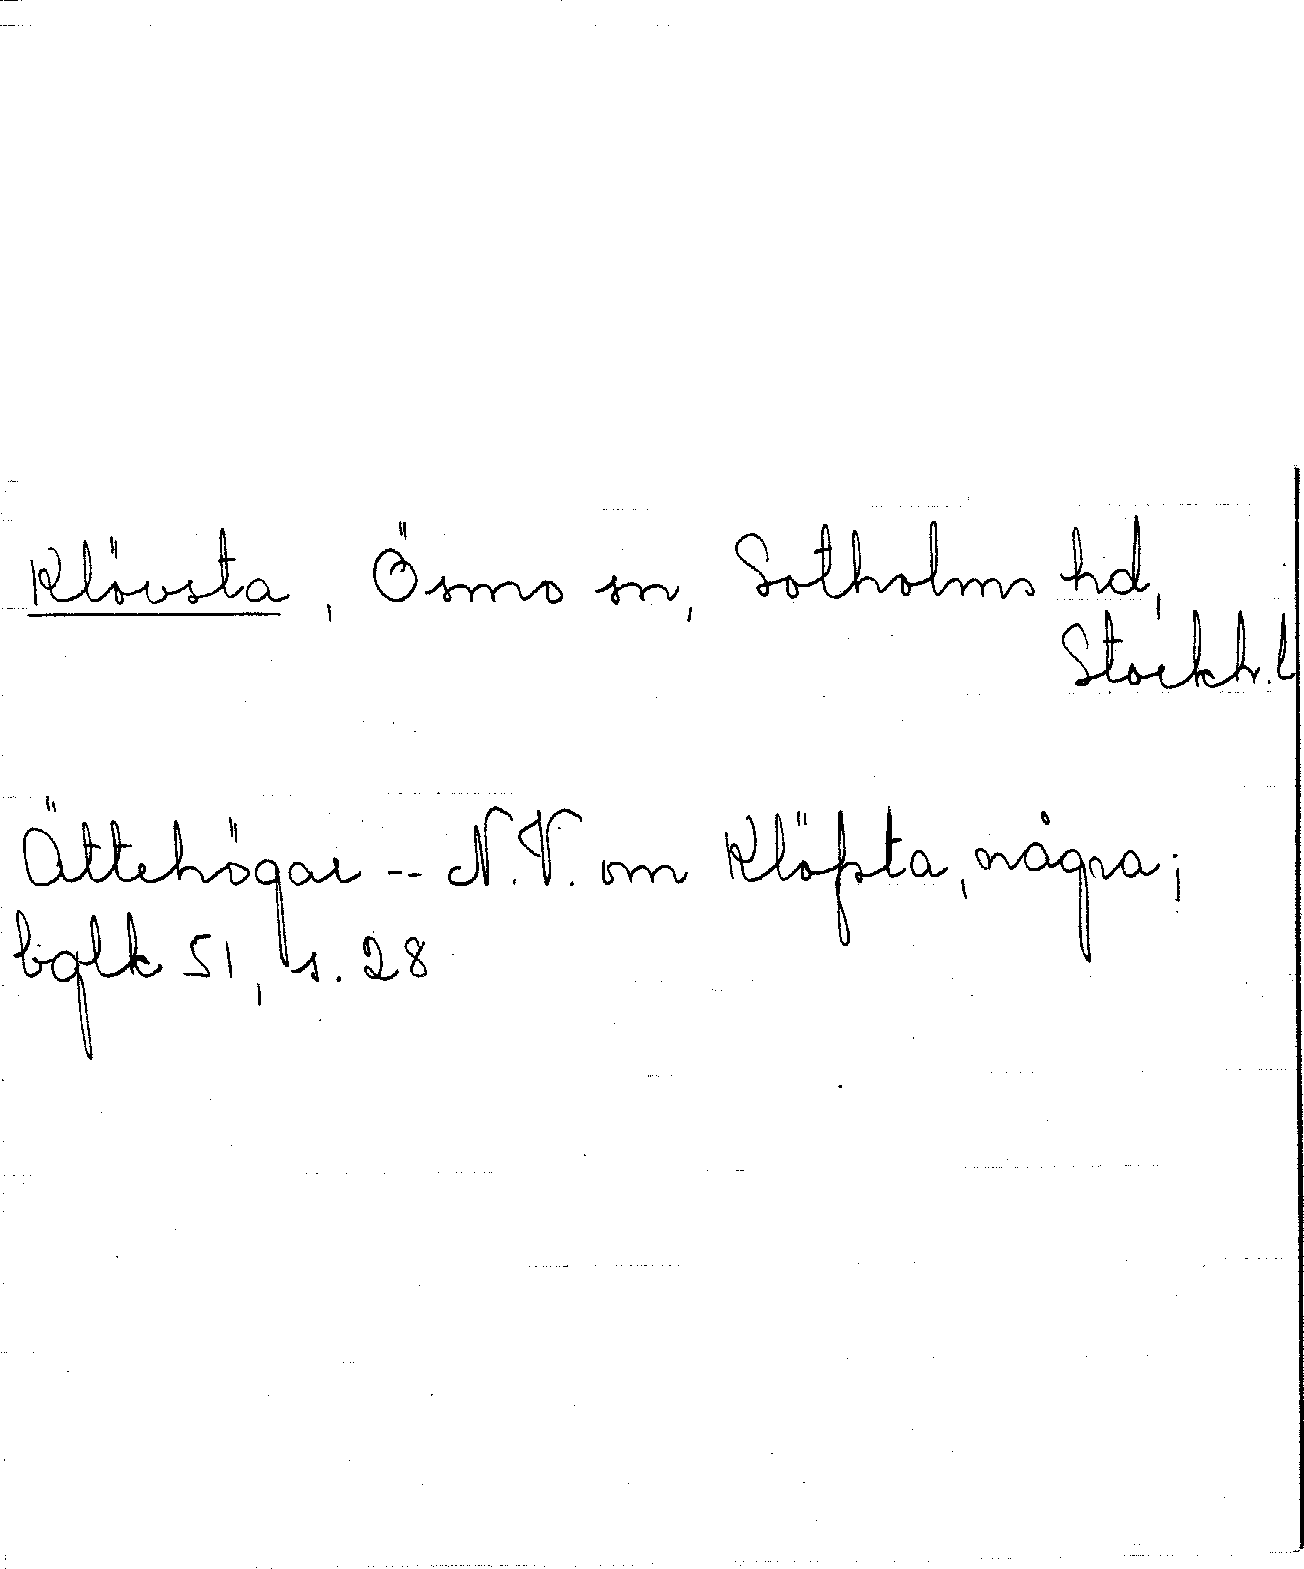 Klövsta, Ösmo sn, Sotholms hd,
Stockh. l
Ättehögar -- N.V. om Klöfsta, några;
bglk 51, s. 28